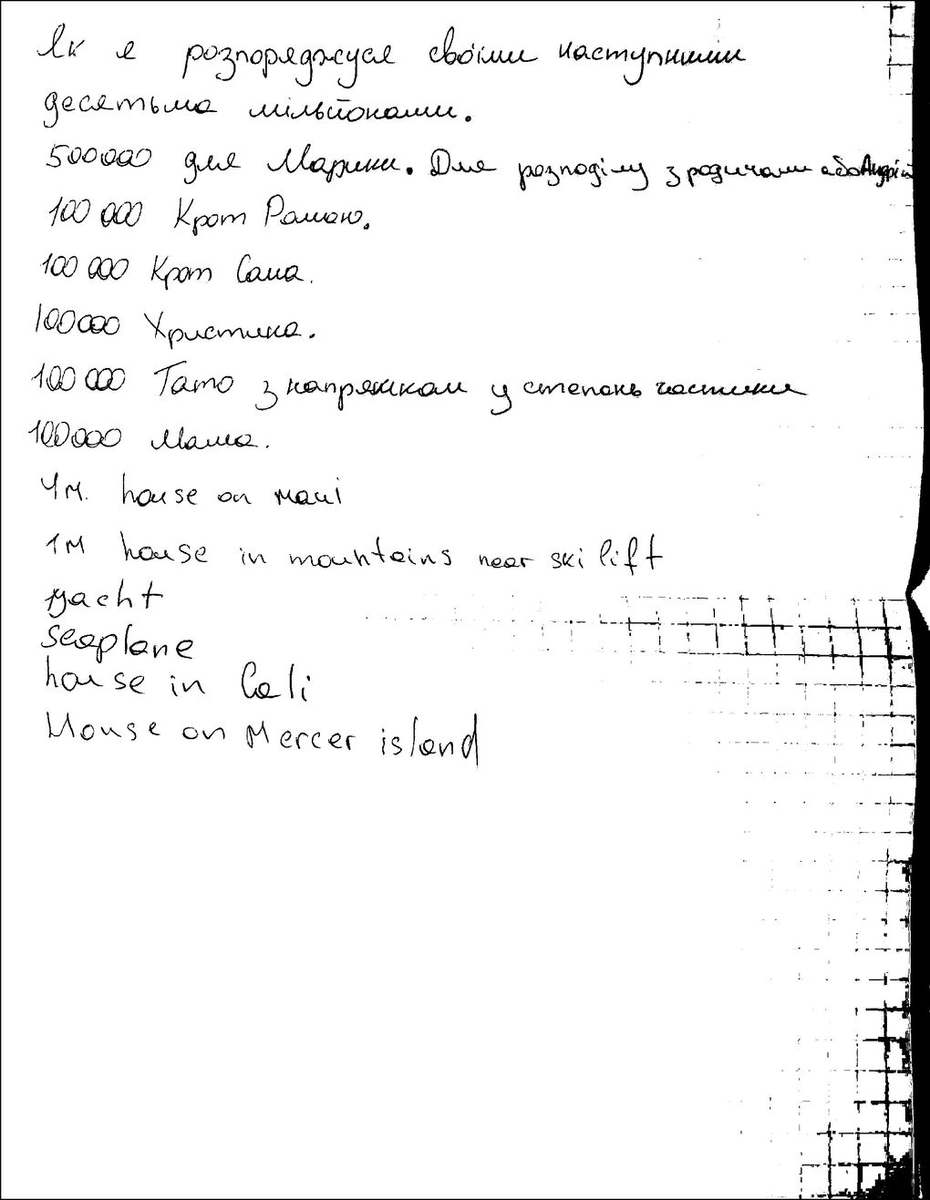 Як я розпоряджуся своїми наступними
десятьма мільйонами.
500000 для Марини. Для розподілу з родичами або Андрій
100 000 Крот Роман.
100 000 Крот Саша.
100000 Христина.
100 000 Тато з напряжком у степень частини
100000 Мама.
4м. house on maui
1м house in mountains near ski lift
yacht
seaplane
house in Cali
House on Mercer island